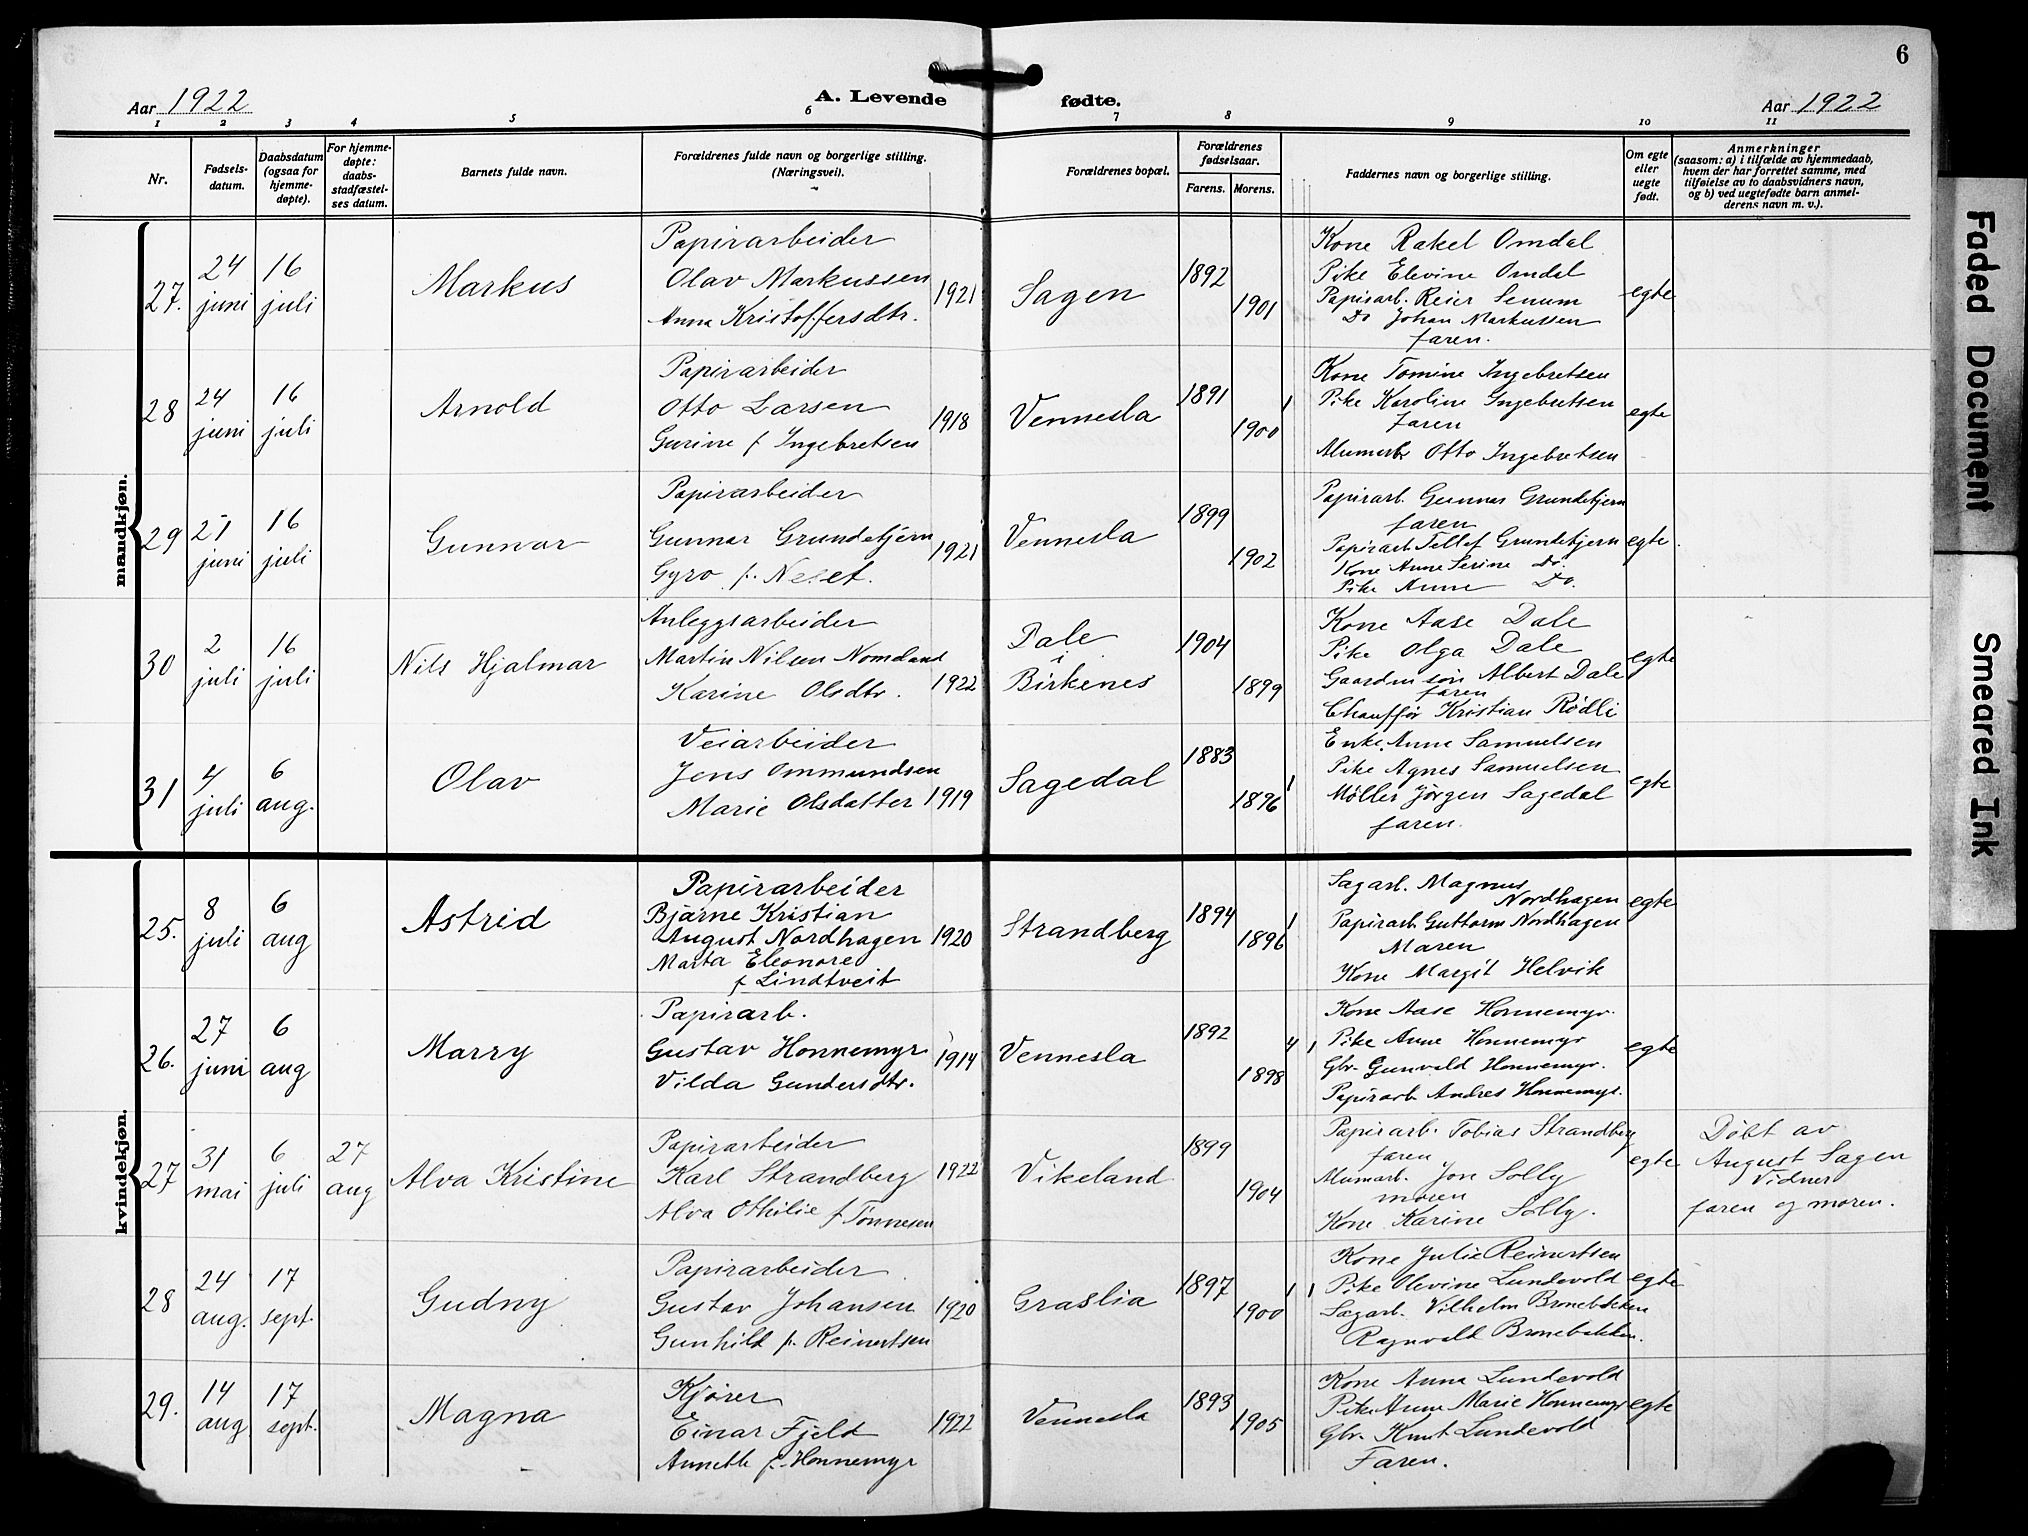 6
Aar 1922 A. Levende fødte. Aar 1922
1 2 3 4 5 6 7 8 9 10 11
Nr.
Fødsels-
datum.
Daabsdatum
(ogsaa for
hjemme-
døpte).
For hjemme-
døpte:
daabs-
stadfæstel-
ses datum.
Barnets fulde navn.
Forældrenes fulde navn og borgerlige stilling.
(Næringsvei).
Forældrenes bopæl.
Forældrenes
fødselsaar.
Farens. Morens.
Faddernes navn og borgerlige stilling.
Om egte
eller
uegte
født.
Anmerkninger
(saasom: a) i tilfælde av hjemmedaab,
hvem der har forrettet samme, med
tilføielse av to daabsvidners navn,
og b) ved uegtefødte barn anmel-
derens navn m. v.).
mandkjøn.
27.
24
juni
16
juli
Markus
Papirarbeider
Olav Markussen
Anna Kristoffersdtr.
1921
Sagen
1892
1901
Kone Rakel Omdal
Pike Elevine Omdal
Papirarb. Reier Senum
Do Johan Markussen
faren.
egte
28
24
juni
16
juli
Arnold
Papirarbeider
Otto Larsen
Gurine f Ingebretsen
1918
Vennesla
1891
1900
1
Kone Tomine Ingebretsen
Pike Karoline Ingebretsen
faren
Alumarb Otto Ingebretsen
egte
29
21
juni
16
juli
Gunnar
Papirarbeider
Gunnar Grundetjern
Gyro f. Neset.
1921
Vennesla
1899
1902
Papirarb. Gunnar Grundetjern
faren
Papirarb Tellef Grundetjern
Kone Anne Serine Do.
Pike Anne Do.
egte.
30
2
juli
16
juli
Nils Hjalmar
Anleggsarbeider
Martin Nilsen Nomeland
Karine Olsdtr.
1922
Dale
i
Birkenes
1904
1899
Kone Aase Dale
Pike Olga Dale
Gaardm søn Albert Dale
faren
Chauffør Kristian Rødli
egte
31
4
juli
6
aug.
Olav
Veiarbeider
Jens Ommundsen
Marie Olsdatter
1919
Sagedal
1883
1896
1
Enke Anne Samuelsen
Pike Agnes Samuelsen
Møller Jørgen Sagedal
faren.
egte
kvindekjøn.
25.
8
juli
6
aug
Astrid
Papirarbeider
Bjarne Kristian
August Nordhagen
Marta Eleonore
f Lindtveit
1920
Strandberg
1894
1896
1
Sagarb. Magnus
Nordhagen
Papirarb Guttorm Nordhagen
Maren
Kone Margit Helvik
egte
26.
27
juni
6
aug
Marry
Papirarb.
Gustav Honnemyr
Vilda Gundersdtr.
1914
Vennesla
1892
1898
4 1
Kone Aase Honnemyr.
Pike Anne Honnemyr
Gbr. Gunvald Honnemyr.
Papirarb Andres Honnemyr.
egte
27
31
mai
6
juli
27
aug
Alva Kristine
Papirarbeider
Karl Strandberg
Alva Othilie f Tønnesen
1922
Vikeland
1899
1904
Papirarb. Tobias Strandberg
faren
Alumarb. Jon Solly
moren
Kone Karine Solly.
egte
Døbt av
August Sagen
Vidner
faren og moren.
28
24
aug.
17
sept.
Gudny
Papirarbeider
Gustav Johansen
Gunhild f. Reinertsen
1920
Graslia
1897
1900
1 1
Kone Julie Reinertsen
Pike Olevine Lundevold
Sagarb. Vilhelm Bronebakken
Ragnvald Bronebakken.
egte
29.
14
aug
17
sept.
Magna
Kjører
Einar Fjeld
Annette f. Honnemyr
1922
Vennesla
1893
1905
Kone Anna Lundevold
Pike Anne Marie Honnemyr
Gbr. Knut Lundevold
Faren.
egte
Faded Document
Smeared Ink